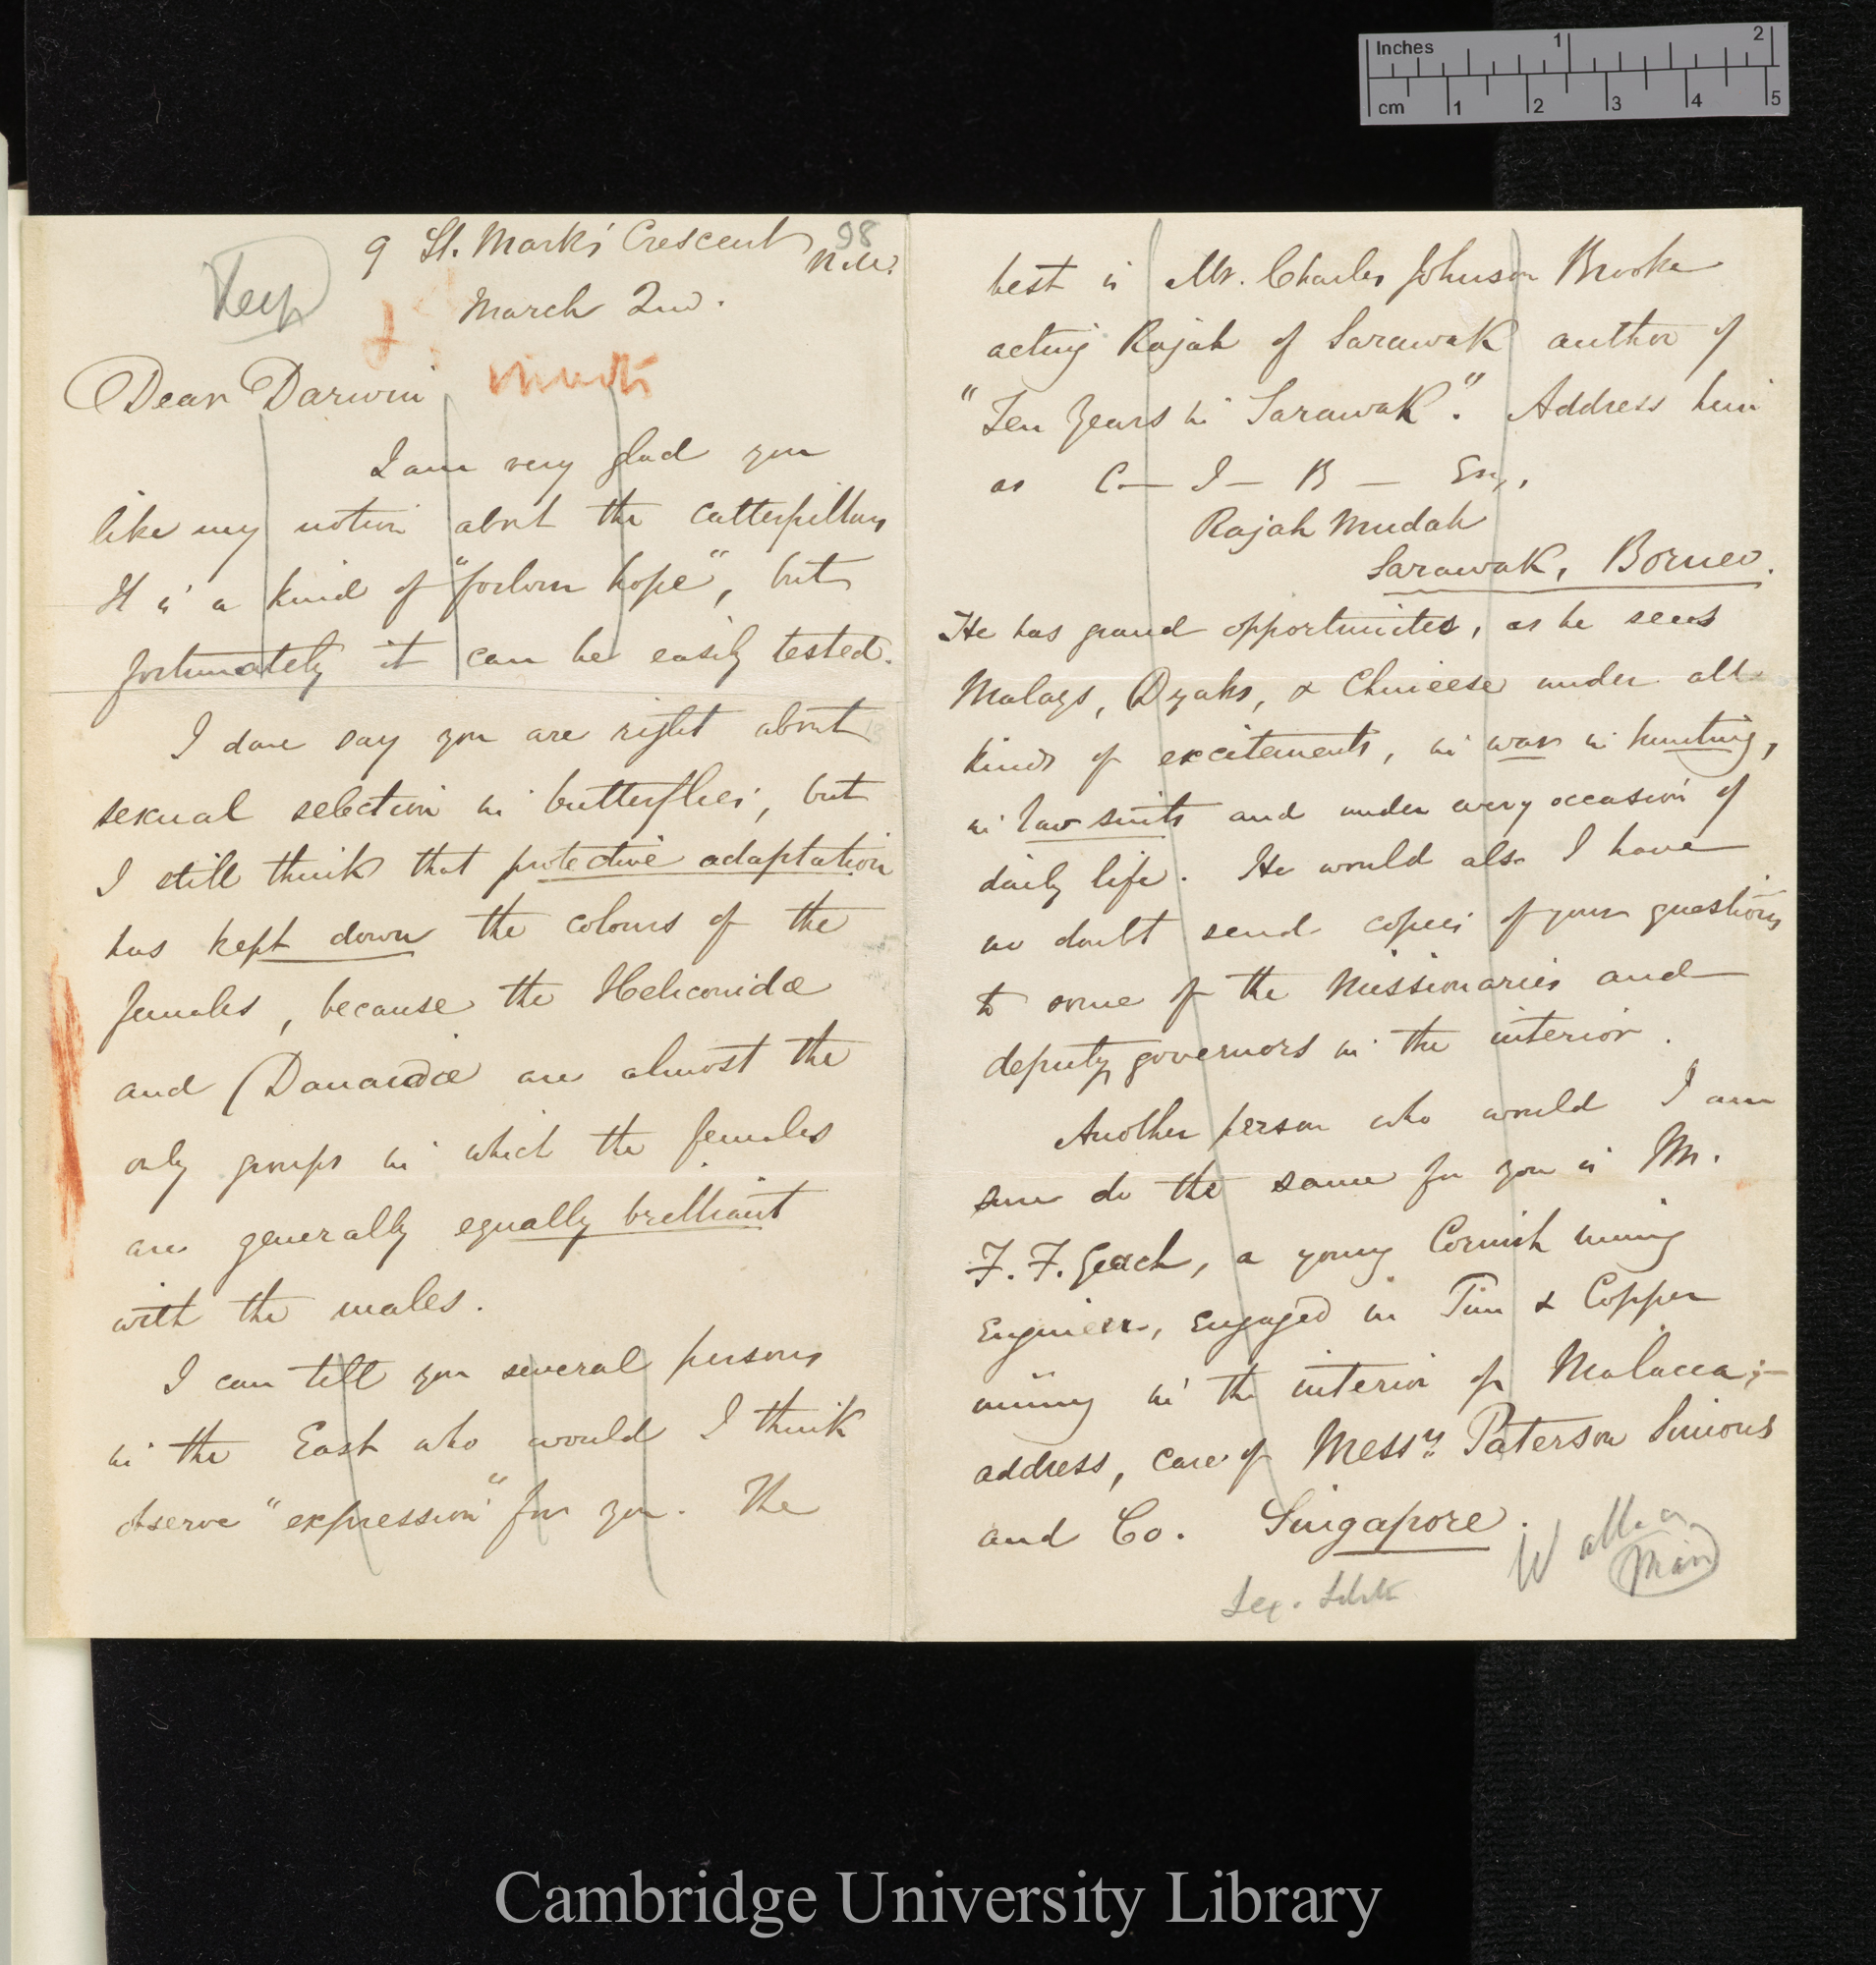 Inches 1 2
cm 1 2 3 4 5
98
9 St. Mark's Crescent
N.W.
Keep
March 2nd.
Dear Darwin
I am very glad you
like my notion about the catterpillars
It is a kind of "forlorn hope", but
fortunately it can be easily tested.
I dare say you are right about
sexual selection in butterflies, but
I still think that protective adaptation
has kept down the colours of the
females, because the Heliconidæ
and Danaidæ are almost the
only groups in which the females
are generally equally brilliant
with the males.
I can tell you several persons
in the East who would I think
observe "expression" for you. The
best is Mr. Charles Johnson Brooke
acting Rajah of Sarawak author of
"Ten Years in Sarawak". Address him
as C— J— B— Esq.,
Rajah Mudah
Sarawak, Borneo.
He has grand opportunites, as he sees
Malays, Dyaks, & Chineese under all
kinds of excitements, in war in hunting,
in law suits and under every occasion of
daily life. He would also I have
no doubt send copies of your questions
to some of the Missionaries and
deputy governors in the interior.
Another person who would I am
sure do the same for you is Mr.
F. F. Geach, a young Cornish mining
Engineer, engaged in Tin & Copper
mining in the interior of Malacca;—
address, care of Messrs. Paterson Simons
and Co. Singapore.
Man
Sex. Select
Cambridge University Library